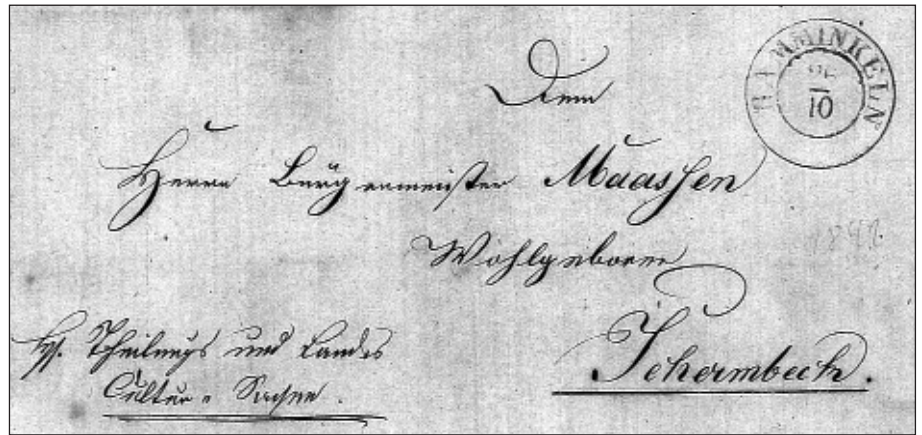 HAMMINKELN
10
Dem
Herrn Bürgermeister Maassen
Wohlgeboren
Schermbeck.
Theilungs und Landes
Cultur - Sachen.